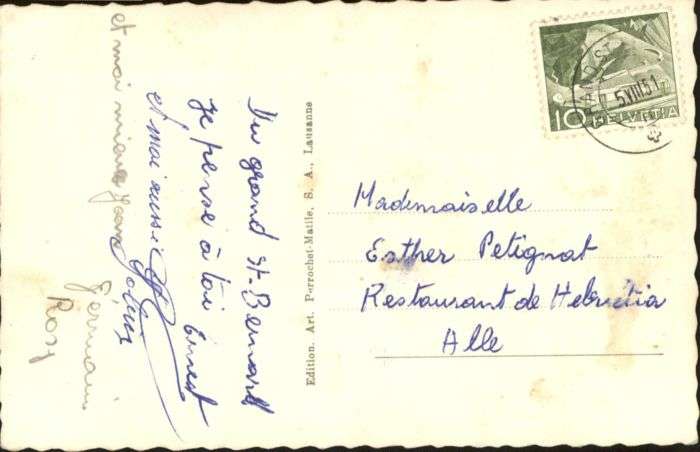 Du grand St-Bernard
je pense à toi Ernest
et moi aussi
et moi
Germain
Rosy
Edition. Art. Perrochet-Matile, S. A., Lausanne
Mademoiselle
Esther Petignat
Restaurant de Helvétia
Alle
10
HELVETIA
5.VIII.51